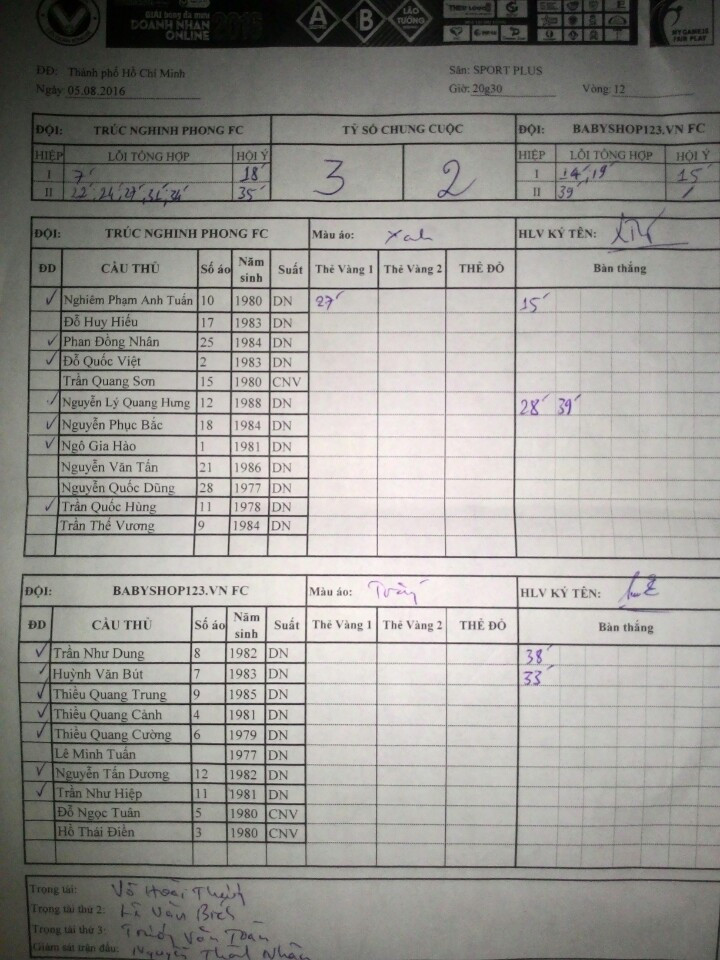 GIẢI bóng đá mini
DOANH NHÂN 2016
ONLINE
A B LÃO TƯỚNG
MY GAME IS FAIR PLAY
ĐĐ: Thành phố Hồ Chí Minh Sân: SPORT PLUS
Ngày: 05.08.2016 Giờ: 20g30 Vòng: 12
ĐỘI: TRÚC NGHINH PHONG FC TỶ SỐ CHUNG CUỘC ĐỘI: BABYSHOP123.VN FC
HIỆP LỖI TỔNG HỢP HỘI Ý 3 2 HIỆP LỖI TỔNG HỢP HỘI Ý
I 7' 18' I 14', 19' 15'
II 22', 24', 27', 31', 34' 35' II 39' /
ĐỘI: TRÚC NGHINH PHONG FC Màu áo: Xanh HLV KÝ TÊN:
ĐD CẦU THỦ Số áo Năm sinh Suất Thẻ Vàng 1 Thẻ Vàng 2 THẺ ĐỎ Bàn thắng
✓ Nghiêm Phạm Anh Tuấn 10 1980 DN 27' 15'
Đỗ Huy Hiếu 17 1983 DN
✓ Phan Đồng Nhân 25 1984 DN
✓ Đỗ Quốc Việt 2 1983 DN
Trần Quang Sơn 15 1980 CNV
✓ Nguyễn Lý Quang Hưng 12 1988 DN 28' 39'
✓ Nguyễn Phục Bắc 18 1984 DN
✓ Ngô Gia Hào 1 1981 DN
Nguyễn Văn Tấn 21 1986 DN
Nguyễn Quốc Dũng 28 1977 DN
✓ Trần Quốc Hùng 11 1978 DN
Trần Thế Vương 9 1984 DN
ĐỘI: BABYSHOP123.VN FC Màu áo: HLV KÝ TÊN:
ĐD CẦU THỦ Số áo Năm sinh Suất Thẻ Vàng 1 Thẻ Vàng 2 THẺ ĐỎ Bàn thắng
✓ Trần Như Dung 8 1982 DN 38'
✓ Huỳnh Văn Bút 7 1983 DN 33'
✓ Thiều Quang Trung 9 1985 DN
✓ Thiều Quang Cảnh 4 1981 DN
✓ Thiều Quang Cường 6 1979 DN
Lê Minh Tuấn 1977 DN
✓ Nguyễn Tấn Dương 12 1982 DN
✓ Trần Như Hiệp 11 1981 DN
Đỗ Ngọc Tuân 5 1980 CNV
Hồ Thái Điền 3 1980 CNV
Trọng tài: Võ Hoài
Trọng tài thứ 2: Lê Văn Bích
Trọng tài thứ 3: Văn Toàn
Giám sát trận đấu: Nguyễn Nhân